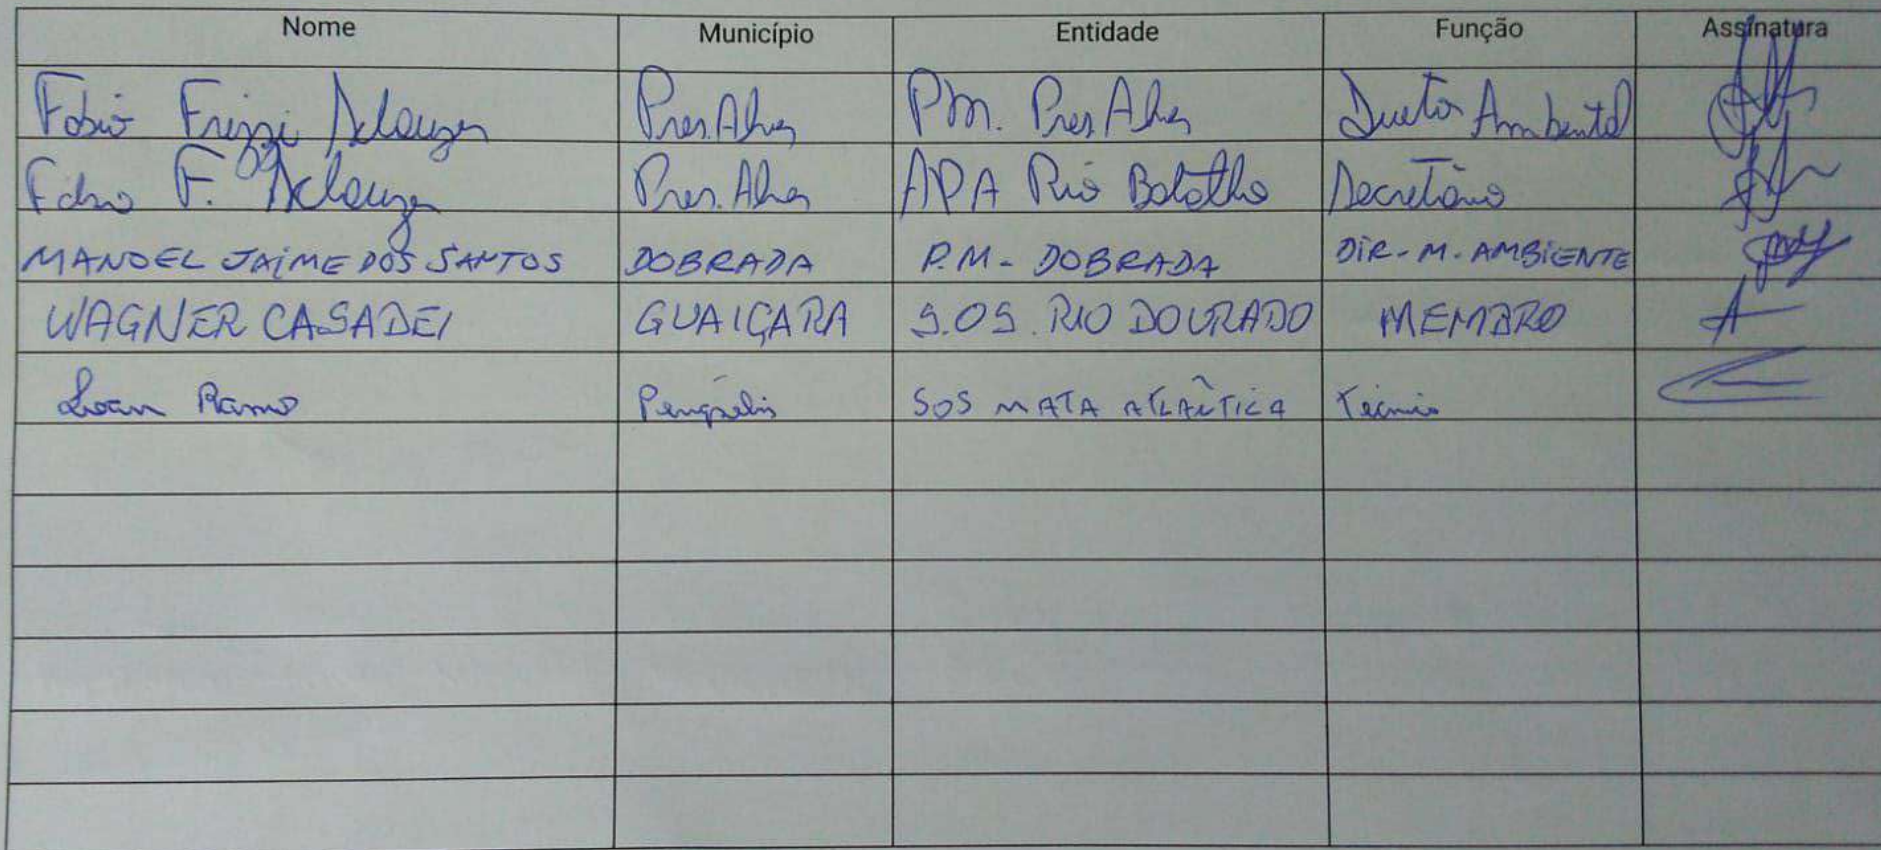 Nome Município Entidade Função Assinatura
Fabio Frizzi Pres. Alves P.M. Pres Alves Diretor Ambiental
Fabio F. Pres. Alves APA Rio Batalha Secretário
MANOEL JAIME DOS SANTOS DOBRADA P.M. - DOBRADA DIR - M. AMBIENTE
WAGNER CASADEI GUAIÇARA S.O.S. RIO DOURADO MEMBRO
Loan Ramo Penápolis SOS MATA ATLÂNTICA Técnico